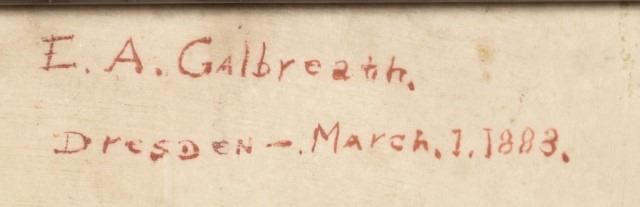 E. A. Galbreath.
Dresden – March. 1. 1883.